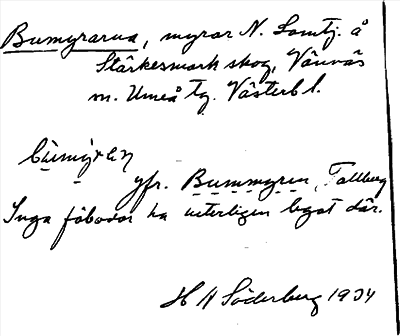 Bumyrarna, myrar N. Lomtj. å
Stärkesmark skog, Vännäs
m. Umeå tg. Västerb l.
bùmỳran
jfr. Bummyren, Tallberg
Inga fäbodar ha veterligen legat där.
H H Söderberg 1934